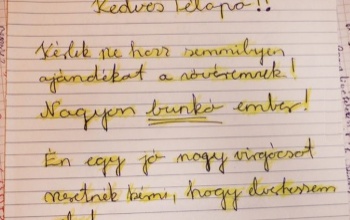 Kedves Télapó!!
Kérlek ne hozz semmilyen
ajándékot a nővéremnek!
Nagyon bunkó ember!
Én egy jó nagy virgácsot
szeretnék kérni, hogy elverhessem